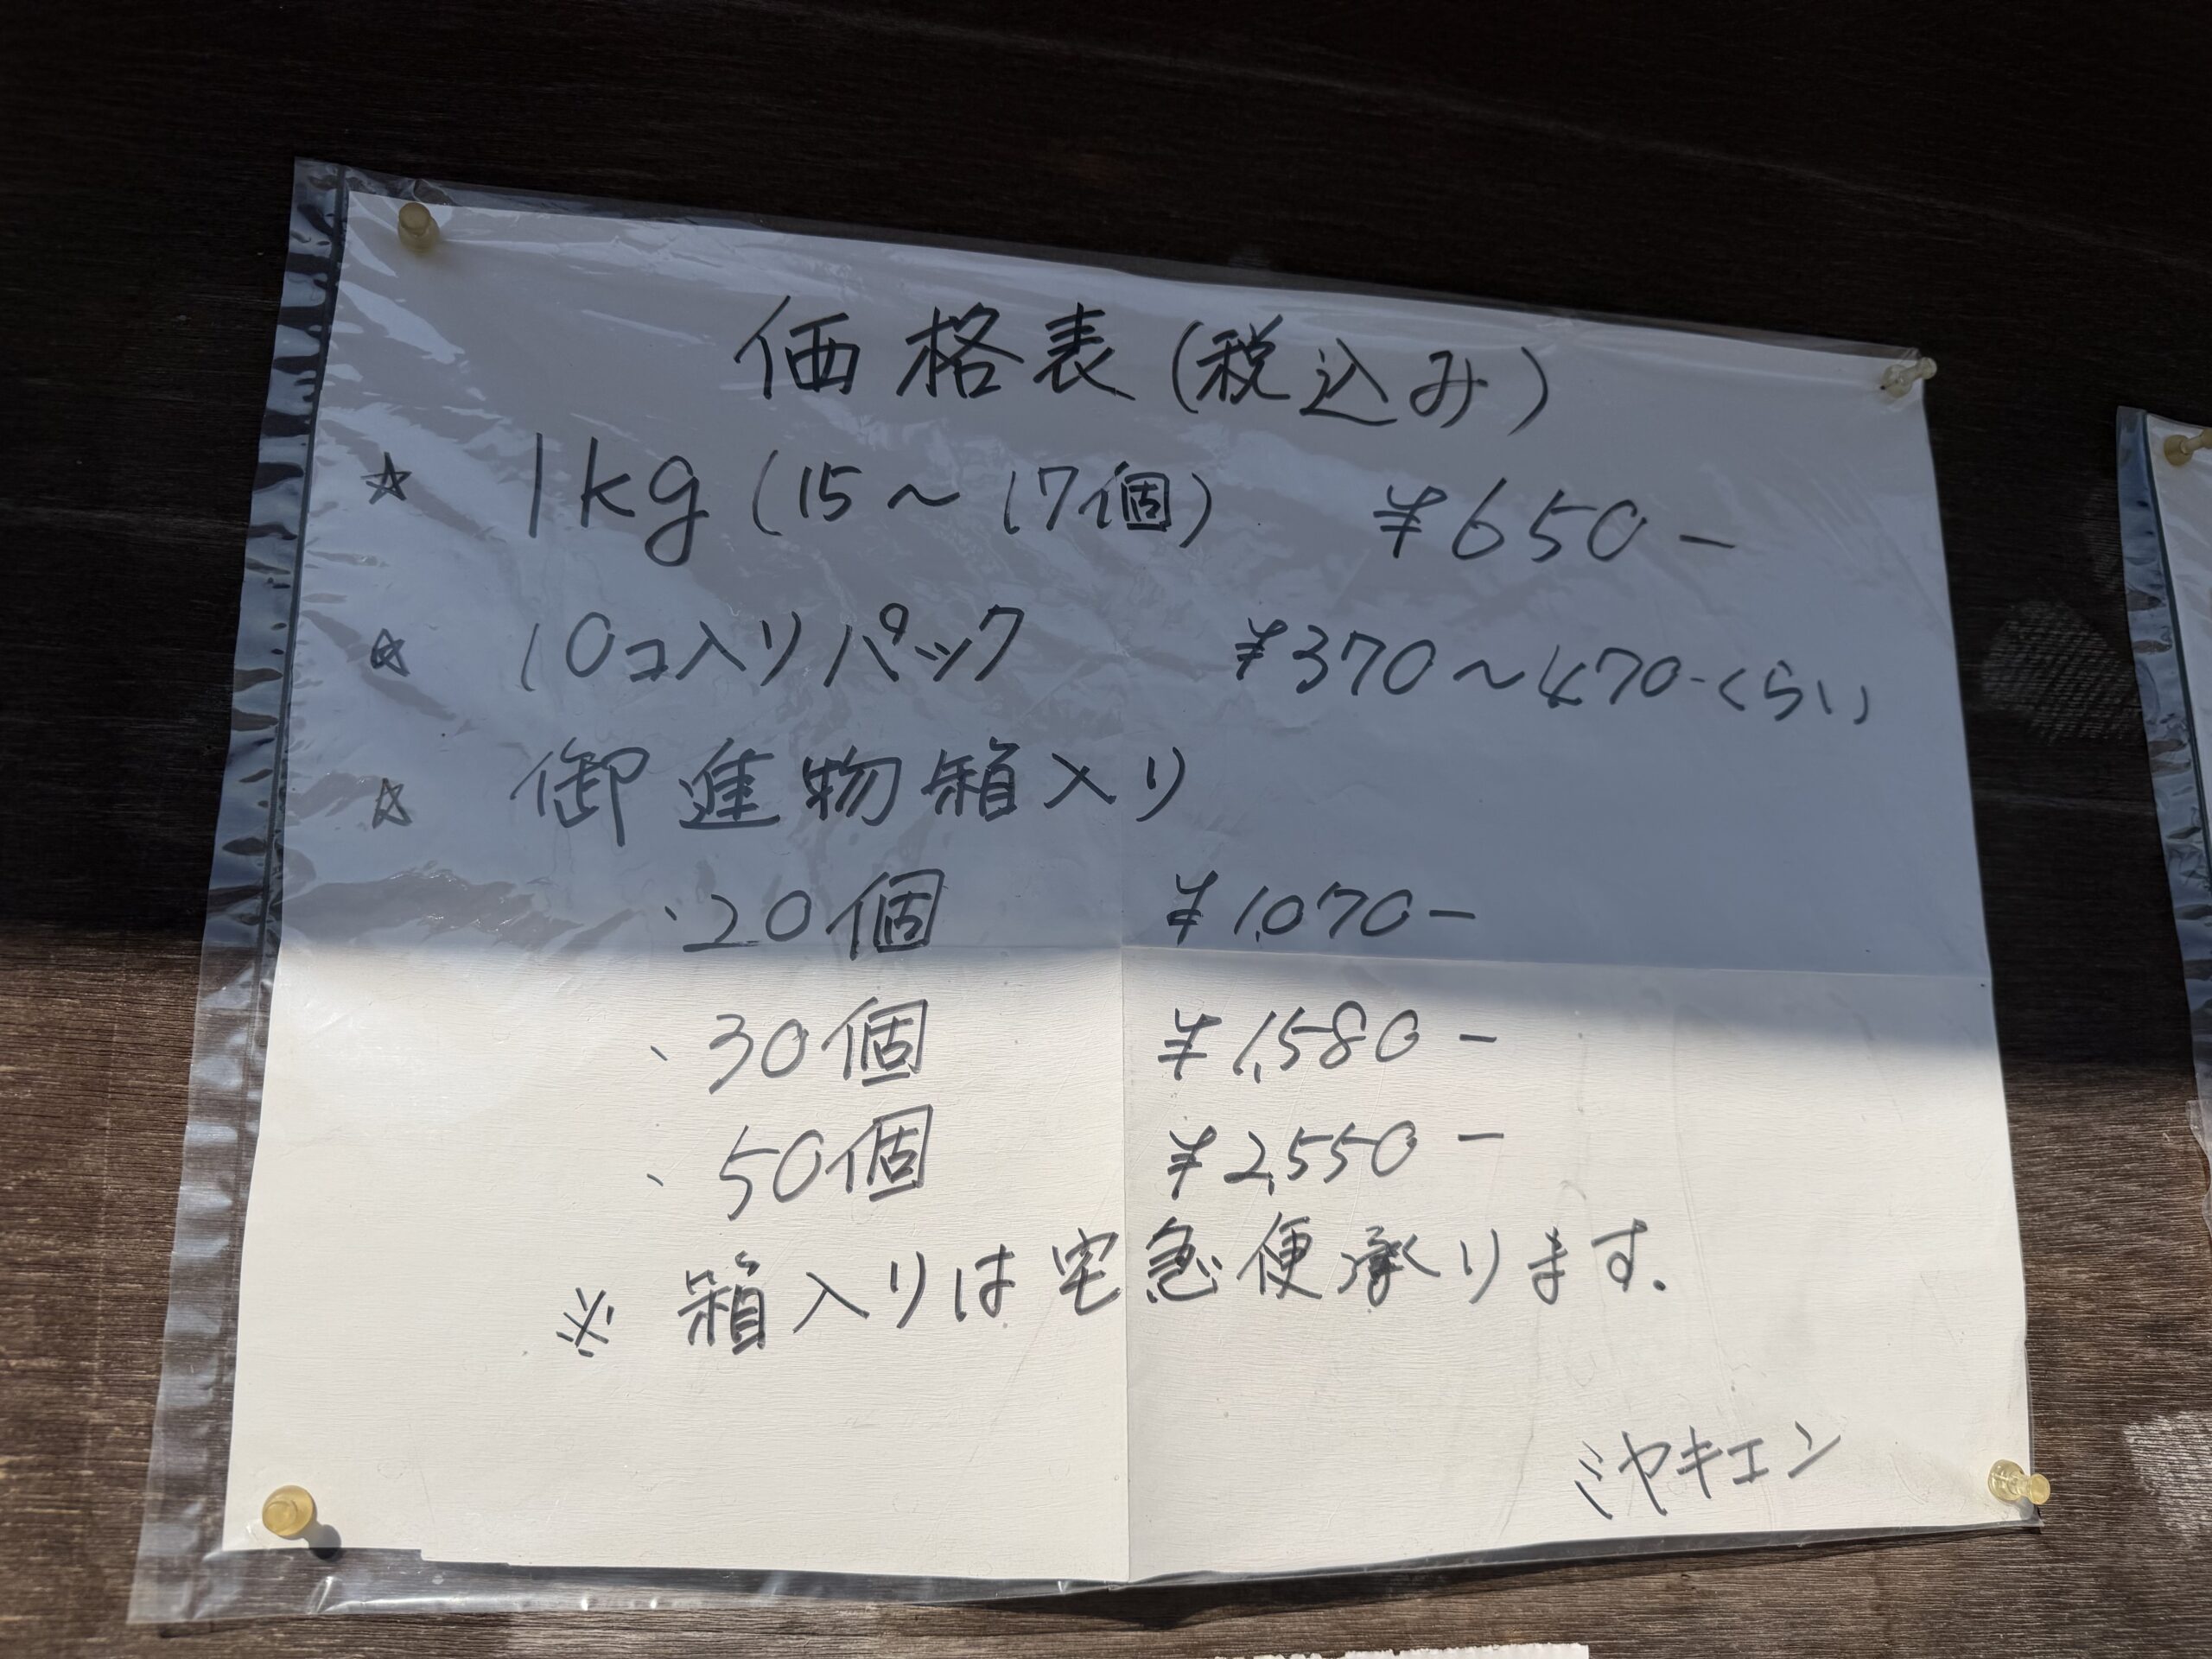 価格表(税込み)
☆ 1kg(15〜17個) ¥650-
☆ 10コ入りパック ¥370〜470-くらい
☆ 御進物箱入り
・20個 ¥1,070-
・30個 ¥1,580-
・50個 ¥2,550-
※ 箱入りは宅急便承ります.
ミヤキエン